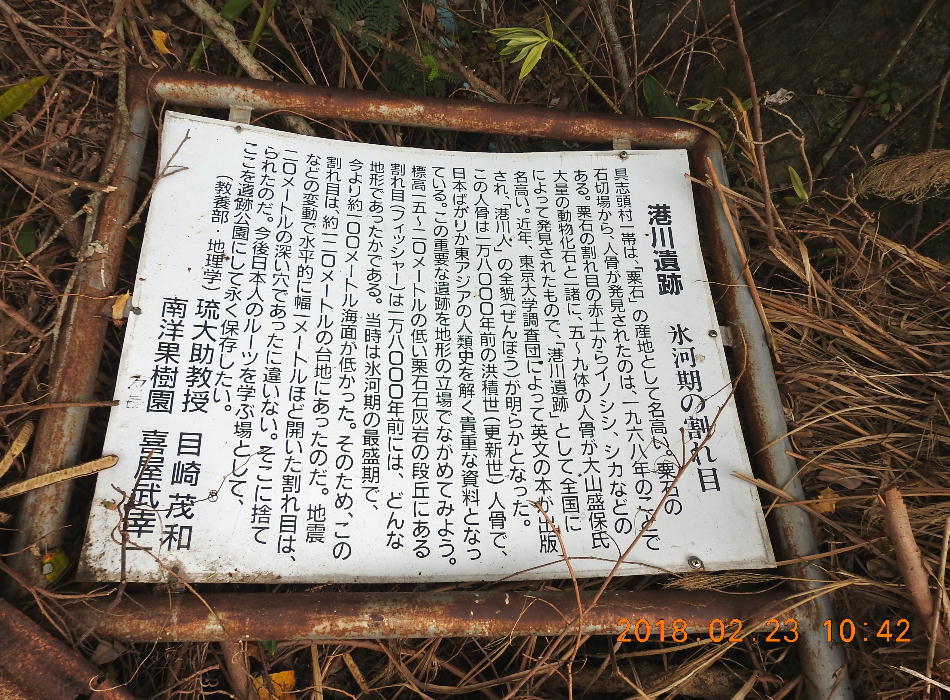 港川遺跡　氷河期の割れ目
具志頭村一帯は、「粟石」の産地として名高い。粟石の
石切場から、人骨が発見されたのは、一九六八年のことで
ある。粟石の割れ目の赤土からイノシシ、シカなどの
大量の動物化石と一諸に、五～九体の人骨が大山盛保氏
によって発見されたもので、「港川遺跡」として全国に
名高い。近年、東京大学調査団によって英文の本が出版
され、「港川人」の全貌（ぜんぼう）が明らかとなった。
この人骨は一万八〇〇〇年前の洪積世（更新世）人骨で、
日本ばかりか東アジアの人類史を解く貴重な資料となっ
ている。この重要な遺跡を地形の立場でながめてみよう。
標高一五～二〇メートルの低い粟石石灰岩の段丘にある
割れ目（フィッシャー）は一万八〇〇〇年前には、どんな
地形であったかである。当時は氷河期の最盛期で、
今より約一〇〇メートル海面が低かった。そのため、この
割れ目は、約一二〇メートルの台地にあったのだ。地震
などの変動で水平的に幅一メートルほど開いた割れ目は、
二〇メートルの深い穴であったに違いない。そこに捨て
られたのだ。今後日本人のルーツを学ぶ場として、
ここを遺跡公園にして永く保存したい。
（教養部・地理学）琉大助教授　目崎茂和
南洋果樹園　喜屋武幸一
2018 02 23 10:42